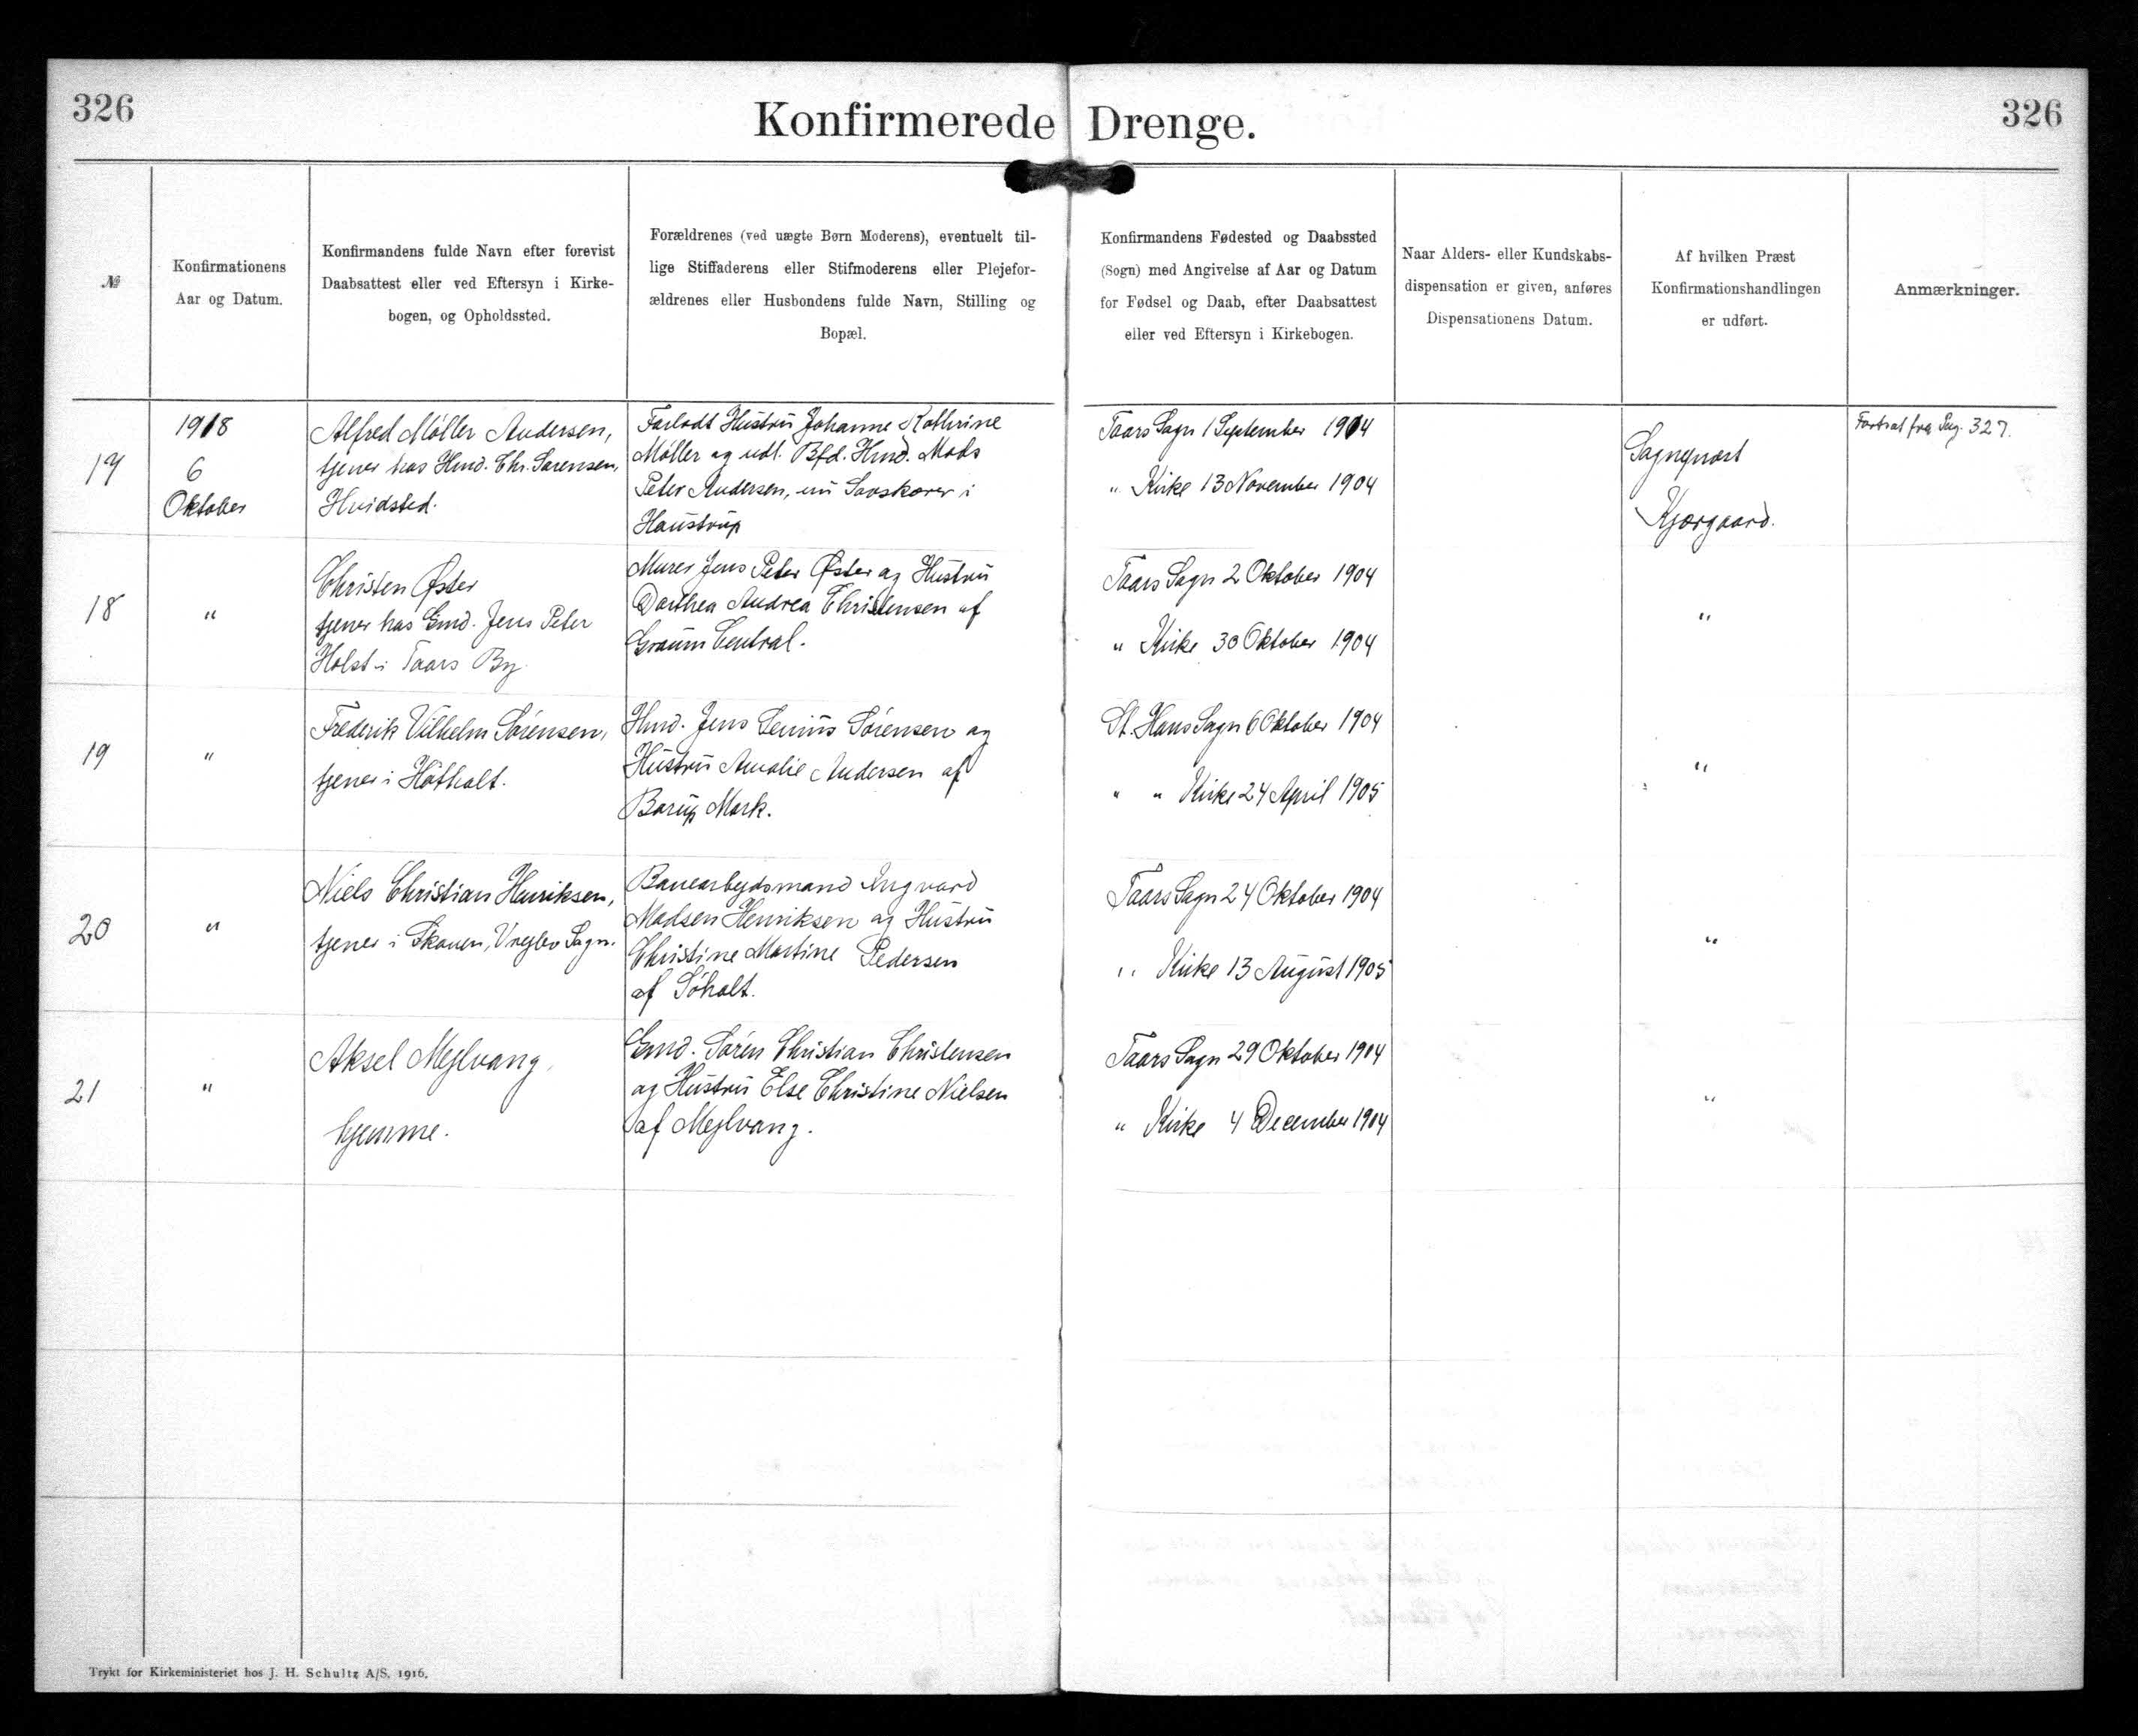 326
326
Konfirmerede Drenge.
№
Konfirmationens
Aar og Datum.
Konfirmandens fulde Navn efter forevist
Daabsattest eller ved Eftersyn i Kirke-
bogen, og Opholdssted.
Forældrenes (ved uægte Børn Moderens), eventuelt til-
lige Stiffaderens eller Stifmoderens eller Plejefor-
ældrenes eller Husbondens fulde Navn, Stilling og
Bopæl.
Konfirmandens Fødested og Daabssted
(Sogn) med Angivelse af Aar og Datum
for Fødsel og Daab, efter Daabsattest
eller ved Eftersyn i Kirkebogen.
Naar Alders- eller Kundskabs-
dispensation er given, anføres
Dispensationens Datum.
Af hvilken Præst
Konfirmationshandlingen
er udført.
Anmærkninger.
17
1918
6
Oktober
Alfred Møller Andersen,
tjener hos Hmd. Chr. Sørensen,
Hvidsted.
Forladt Hustru Johanne Kathrine
Møller og udl. Bfd. Hmd. Mads
Peter Andersen, nu Savskærer i
Haustrup
Taars Sogn 1 September 1904
" Kirke 13 November 1904
Sognepræst
Kjærgaard.
Fortsat fra Pag. 327.
18
"
Christen Øster
tjener hos Gmd. Jens Peter
Holst i Taars By
Murer Jens Peter Øster og Hustru
Dorthea Andrea Christensen af
Graum Central.
Taars Sogn 2 Oktober 1904
" Kirke 30 Oktober 1904
"
19
"
Frederik Vilhelm Sørensen,
tjener i Høtholt.
Hmd. Jens Senius Sørensen og
Hustru Amalie Andersen af
Borup Mark.
St. Hans Sogn 6 Oktober 1904
" " Kirke 24 April 1905
"
20
"
Niels Christian Henriksen,
tjener i Skoven, Vrejlev Sogn.
Banearbejdsmand Ingvard
Madsen Henriksen og Hustru
Christine Martine Pedersen
af Søholt.
Taars Sogn 24 Oktober 1904
" Kirke 13 August 1905
"
21
"
Aksel Mejlvang,
hjemme.
Gmd. Søren Christian Christensen
og Hustru Else Christine Nielsen
af Mejlvang.
Taars Sogn 29 Oktober 1904
" Kirke 4 December 1904
"
Trykt for Kirkeministeriet hos J. H. Schultz A/S. 1916.